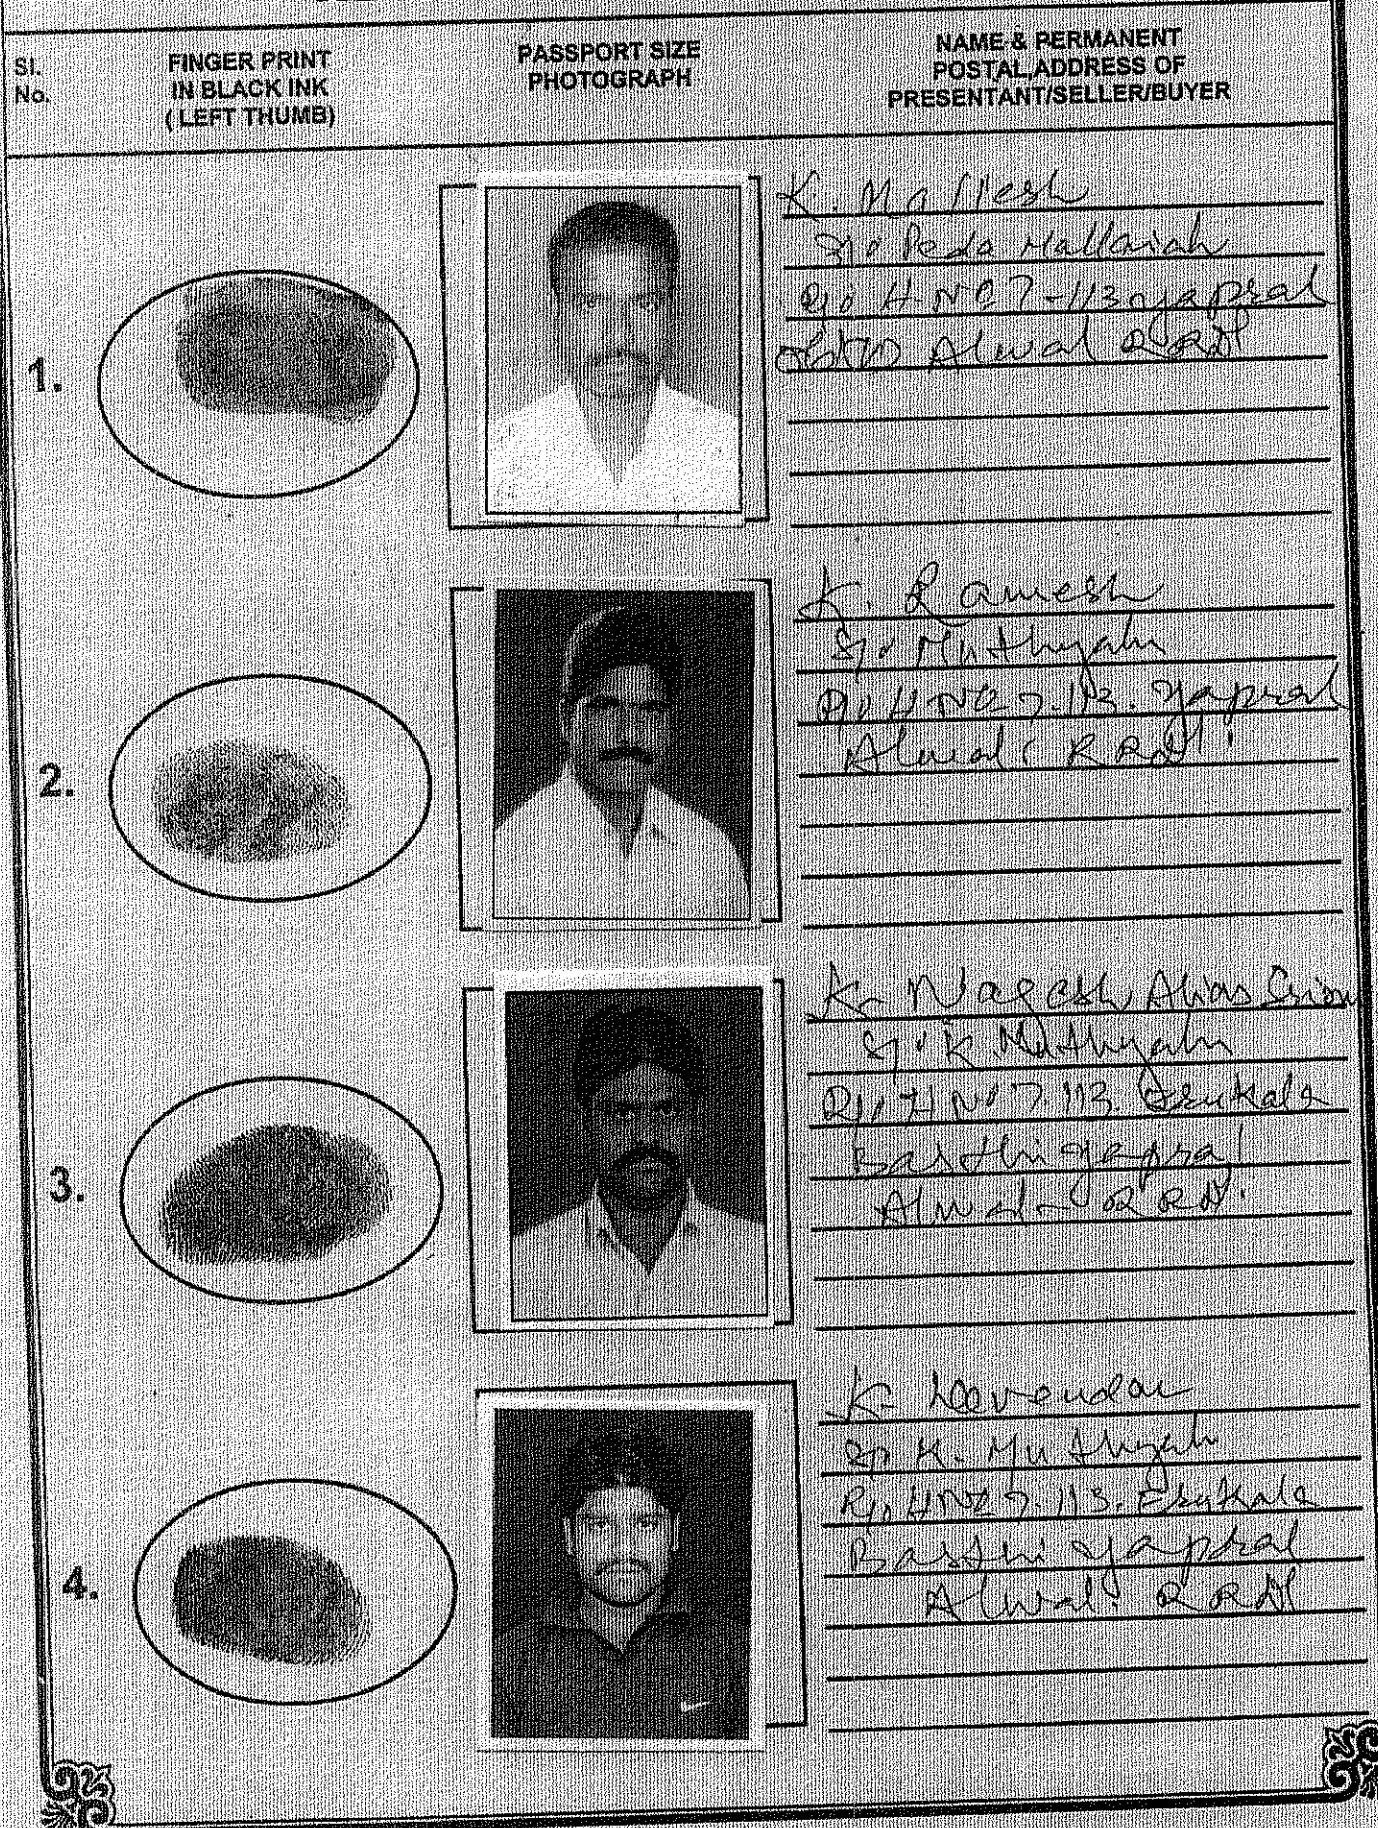 Sl.
No.
FINGER PRINT
IN BLACK INK
( LEFT THUMB)
PASSPORT SIZE
PHOTOGRAPH
NAME & PERMANENT
POSTAL ADDRESS OF
PRESENTANT/SELLER/BUYER
1.
K. Mallesh
S/o Peda Mallaiah
R/o H.No 7-113 yapral
Alwal R R Dt
2.
K. Ramesh
S/o Muthyalu
R/o H No 7.113. Yapral
Alwal. R R Dt.
3.
K. Nagesh Alias
S/o K. Muthyalu
R/o H No 7.113. Erukala
Basthi yapral
Alwal R R Dt.
4.
K. Devendar
S/o K. Muthyalu
R/o H No 7.113. Erukala
Basthi yapral
Alwal. R R Dt